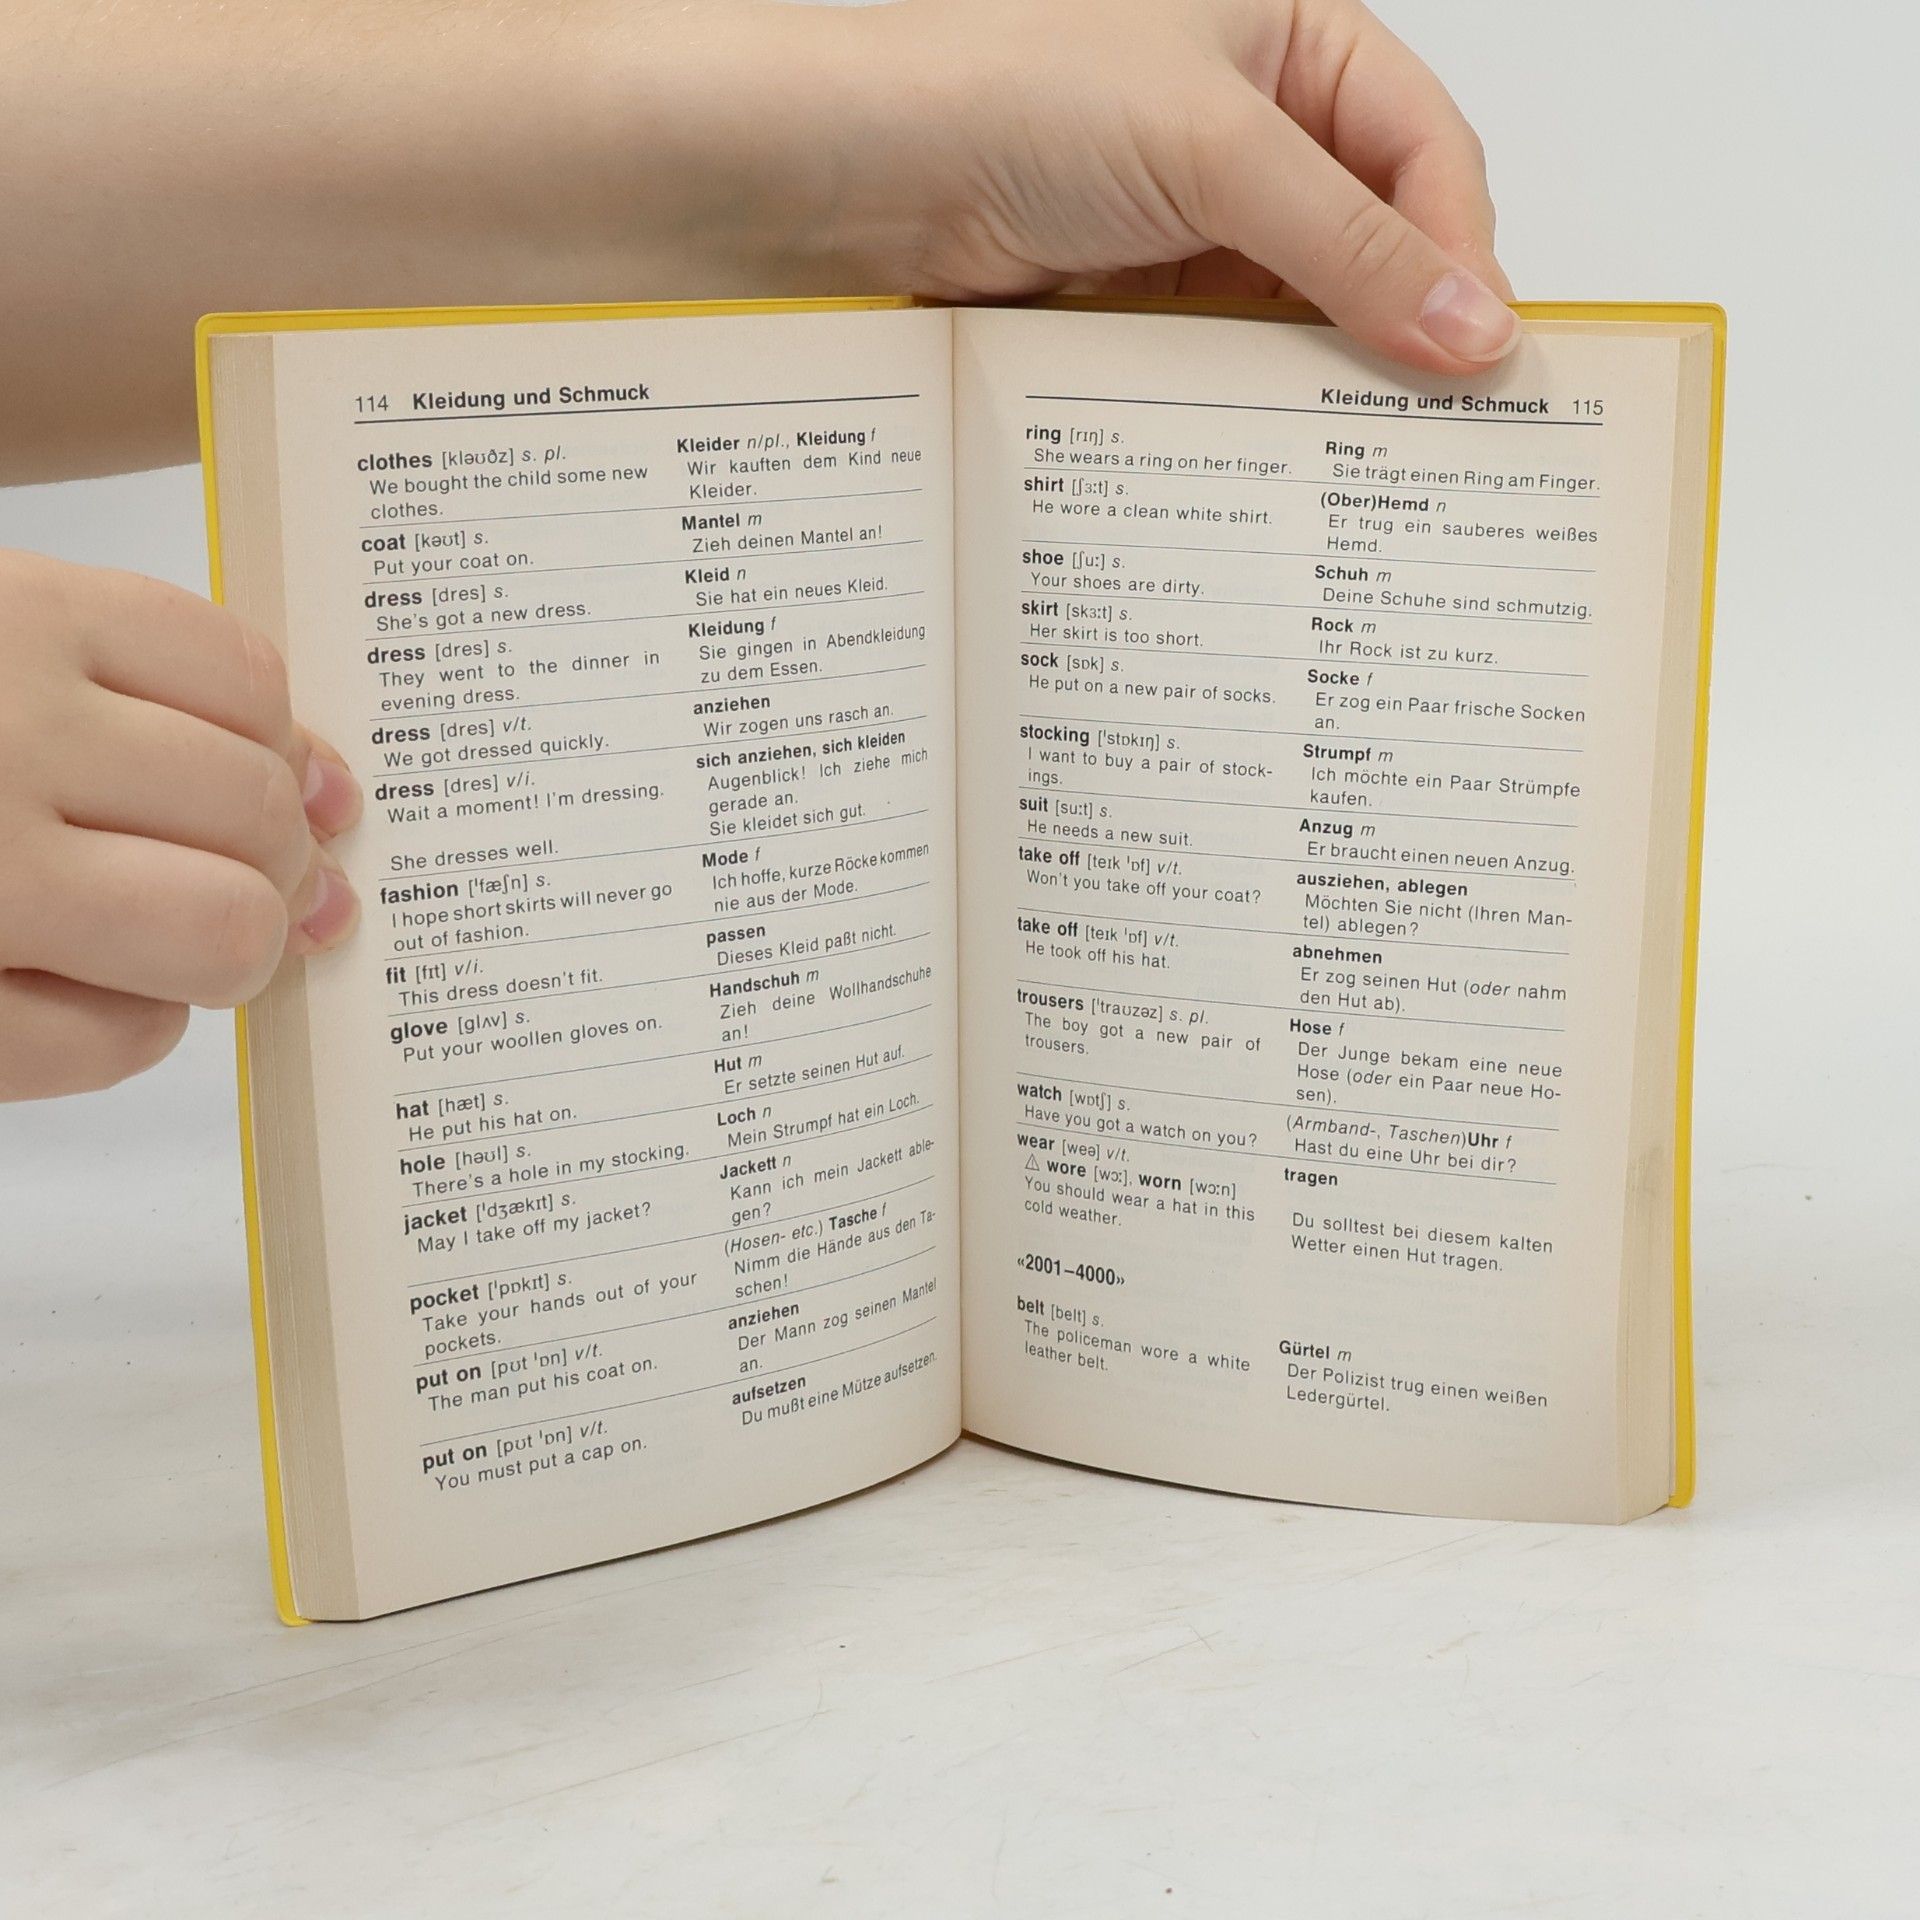 114 Kleidung und Schmuck
clothes [kləʊðz] s. pl.
We bought the child some new
clothes.
Kleider n/pl., Kleidung f
Wir kauften dem Kind neue
Kleider.
coat [kəʊt] s.
Put your coat on.
Mantel m
Zieh deinen Mantel an!
dress [dres] s.
She's got a new dress.
Kleid n
Sie hat ein neues Kleid.
dress [dres] s.
They went to the dinner in
evening dress.
Kleidung f
Sie gingen in Abendkleidung
zu dem Essen.
dress [dres] v/t.
We got dressed quickly.
anziehen
Wir zogen uns rasch an.
dress [dres] v/i.
Wait a moment! I'm dressing.
She dresses well.
sich anziehen, sich kleiden
Augenblick! Ich ziehe mich
gerade an.
Sie kleidet sich gut.
fashion ['fæʃn] s.
I hope short skirts will never go
out of fashion.
Mode f
Ich hoffe, kurze Röcke kommen
nie aus der Mode.
fit [fɪt] v/i.
This dress doesn't fit.
passen
Dieses Kleid paßt nicht.
glove [glʌv] s.
Put your woollen gloves on.
Handschuh m
Zieh deine Wollhandschuhe
an!
hat [hæt] s.
He put his hat on.
Hut m
Er setzte seinen Hut auf.
hole [həʊl] s.
There's a hole in my stocking.
Loch n
Mein Strumpf hat ein Loch.
jacket ['dʒækɪt] s.
May I take off my jacket?
Jackett n
Kann ich mein Jackett able-
gen?
pocket ['pɒkɪt] s.
Take your hands out of your
pockets.
(Hosen- etc.) Tasche f
Nimm die Hände aus den Ta-
schen!
put on [pʊt 'ɒn] v/t.
The man put his coat on.
anziehen
Der Mann zog seinen Mantel
an.
put on [pʊt 'ɒn] v/t.
You must put a cap on.
aufsetzen
Du mußt eine Mütze aufsetzen.
Kleidung und Schmuck 115
ring [rɪŋ] s.
She wears a ring on her finger.
Ring m
Sie trägt einen Ring am Finger.
shirt [ʃɜːt] s.
He wore a clean white shirt.
(Ober)Hemd n
Er trug ein sauberes weißes
Hemd.
shoe [ʃuː] s.
Your shoes are dirty.
Schuh m
Deine Schuhe sind schmutzig.
skirt [skɜːt] s.
Her skirt is too short.
Rock m
Ihr Rock ist zu kurz.
sock [sɒk] s.
He put on a new pair of socks.
Socke f
Er zog ein Paar frische Socken
an.
stocking ['stɒkɪŋ] s.
I want to buy a pair of stock-
ings.
Strumpf m
Ich möchte ein Paar Strümpfe
kaufen.
suit [suːt] s.
He needs a new suit.
Anzug m
Er braucht einen neuen Anzug.
take off [teɪk 'ɒf] v/t.
Won't you take off your coat?
ausziehen, ablegen
Möchten Sie nicht (Ihren Man-
tel) ablegen?
take off [teɪk 'ɒf] v/t.
He took off his hat.
abnehmen
Er zog seinen Hut (oder nahm
den Hut ab).
trousers ['traʊzəz] s. pl.
The boy got a new pair of
trousers.
Hose f
Der Junge bekam eine neue
Hose (oder ein Paar neue Ho-
sen).
watch [wɒtʃ] s.
Have you got a watch on you?
(Armband-, Taschen)Uhr f
Hast du eine Uhr bei dir?
wear [weə] v/t.
⚠ wore [wɔː], worn [wɔːn]
You should wear a hat in this
cold weather.
tragen
Du solltest bei diesem kalten
Wetter einen Hut tragen.
«2001–4000»
belt [belt] s.
The policeman wore a white
leather belt.
Gürtel m
Der Polizist trug einen weißen
Ledergürtel.